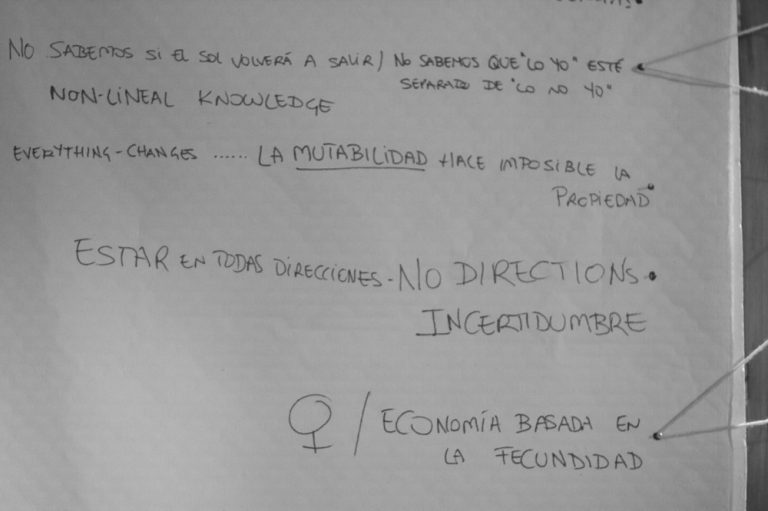 NO SABEMOS SI EL SOL VOLVERÁ A SALIR / NO SABEMOS QUE "LO YO" ESTÉ
SEPARADO DE "LO NO YO"
NON-LINEAL KNOWLEDGE
EVERYTHING-CHANGES ...... LA MUTABILIDAD HACE IMPOSIBLE LA
PROPIEDAD
ESTAR EN TODAS DIRECCIONES - NO DIRECTIONS.
INCERTIDUMBRE
♀ / ECONOMÍA BASADA EN
LA FECUNDIDAD